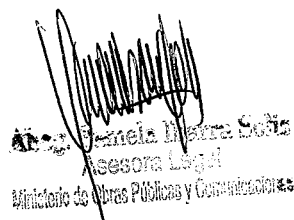 Abog. Pamela Ibarra Solis
Asesora Legal
Ministerio de Obras Públicas y Comunicaciones